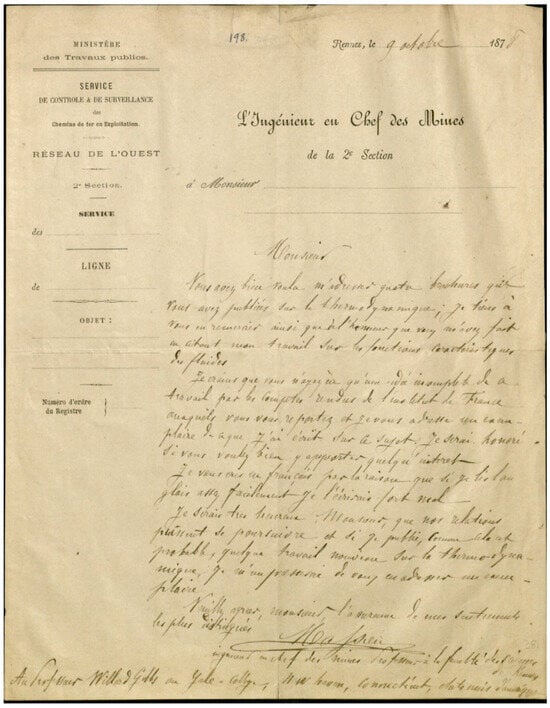 MINISTÈRE
des Travaux publics.
SERVICE
DE CONTROLE & DE SURVEILLANCE
des
Chemins de fer en Exploitation.
RÉSEAU DE L'OUEST
2e Section.
SERVICE
des
LIGNE
de
OBJET :
Numéro d'ordre
du Registre
198.
Rennes, le 9 octobre 1878
L'Ingénieur en Chef des Mines
de la 2e Section
à Monsieur
à
Monsieur
Vous avez bien voulu m'adresser quatre brochures que
vous avez publiées sur la thermodynamique ; je tiens à
vous en remercier ainsi que de l'honneur que vous m'avez fait
en citant mon travail sur les fonctions caractéristiques
des fluides
Je crains que vous n'ayez qu'une idée incomplète de ce
travail par les comptes rendus de l'institut de France
auxquels vous vous reportez et je vous adresse un exem-
plaire de ce que j'ai écrit sur ce sujet. Je serai honoré
si vous voulez bien y apporter quelqu'intérêt
Je vous écris en français par la raison que si je lis l'an
glais assez facilement je l'écrirais fort mal
Je serais très heureux, Monsieur, que nos relations
puissent se poursuivre et si je publie, comme cela est
probable, quelque travail nouveau sur la thermodyna-
mique, je m'empresserai de vous en adresser un exem-
plaire
Veuillez agréer, monsieur l'assurance de mes sentiments
les plus distingués
Massieu
ingénieur en chef des mines Professeur à la faculté des Sciences
Rennes
Au Professeur Willard Gibbs au Yale-College, New haven, connecticut, états unis d'amérique